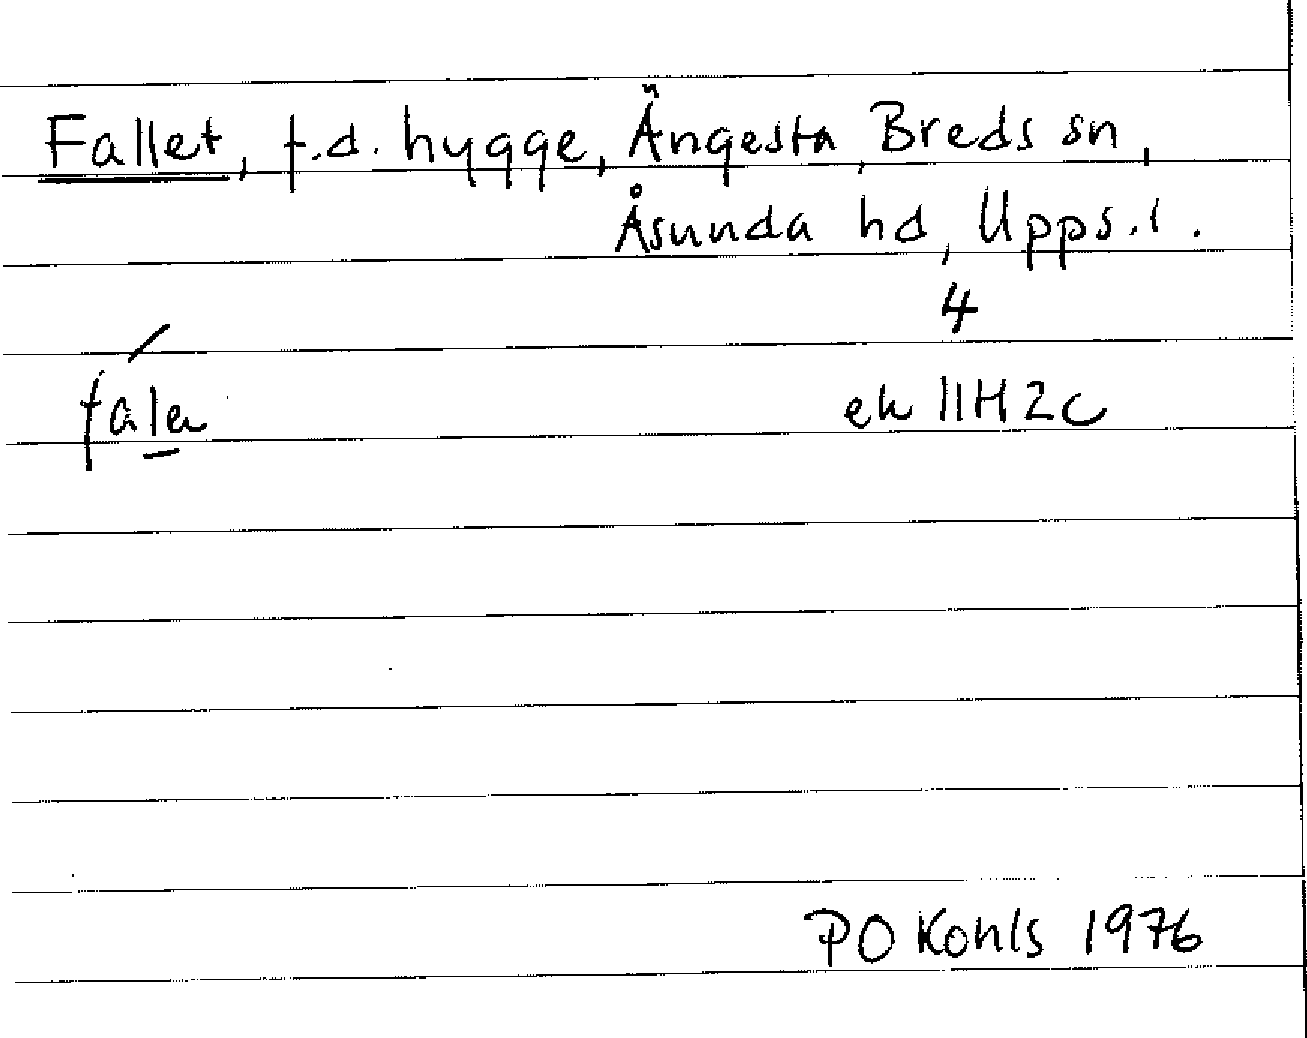 Fallet, f.d. hygge, Ängesta, Breds sn,
Åsunda hd, Upps.l.
4
ek 11H2c
PO Kohls 1976